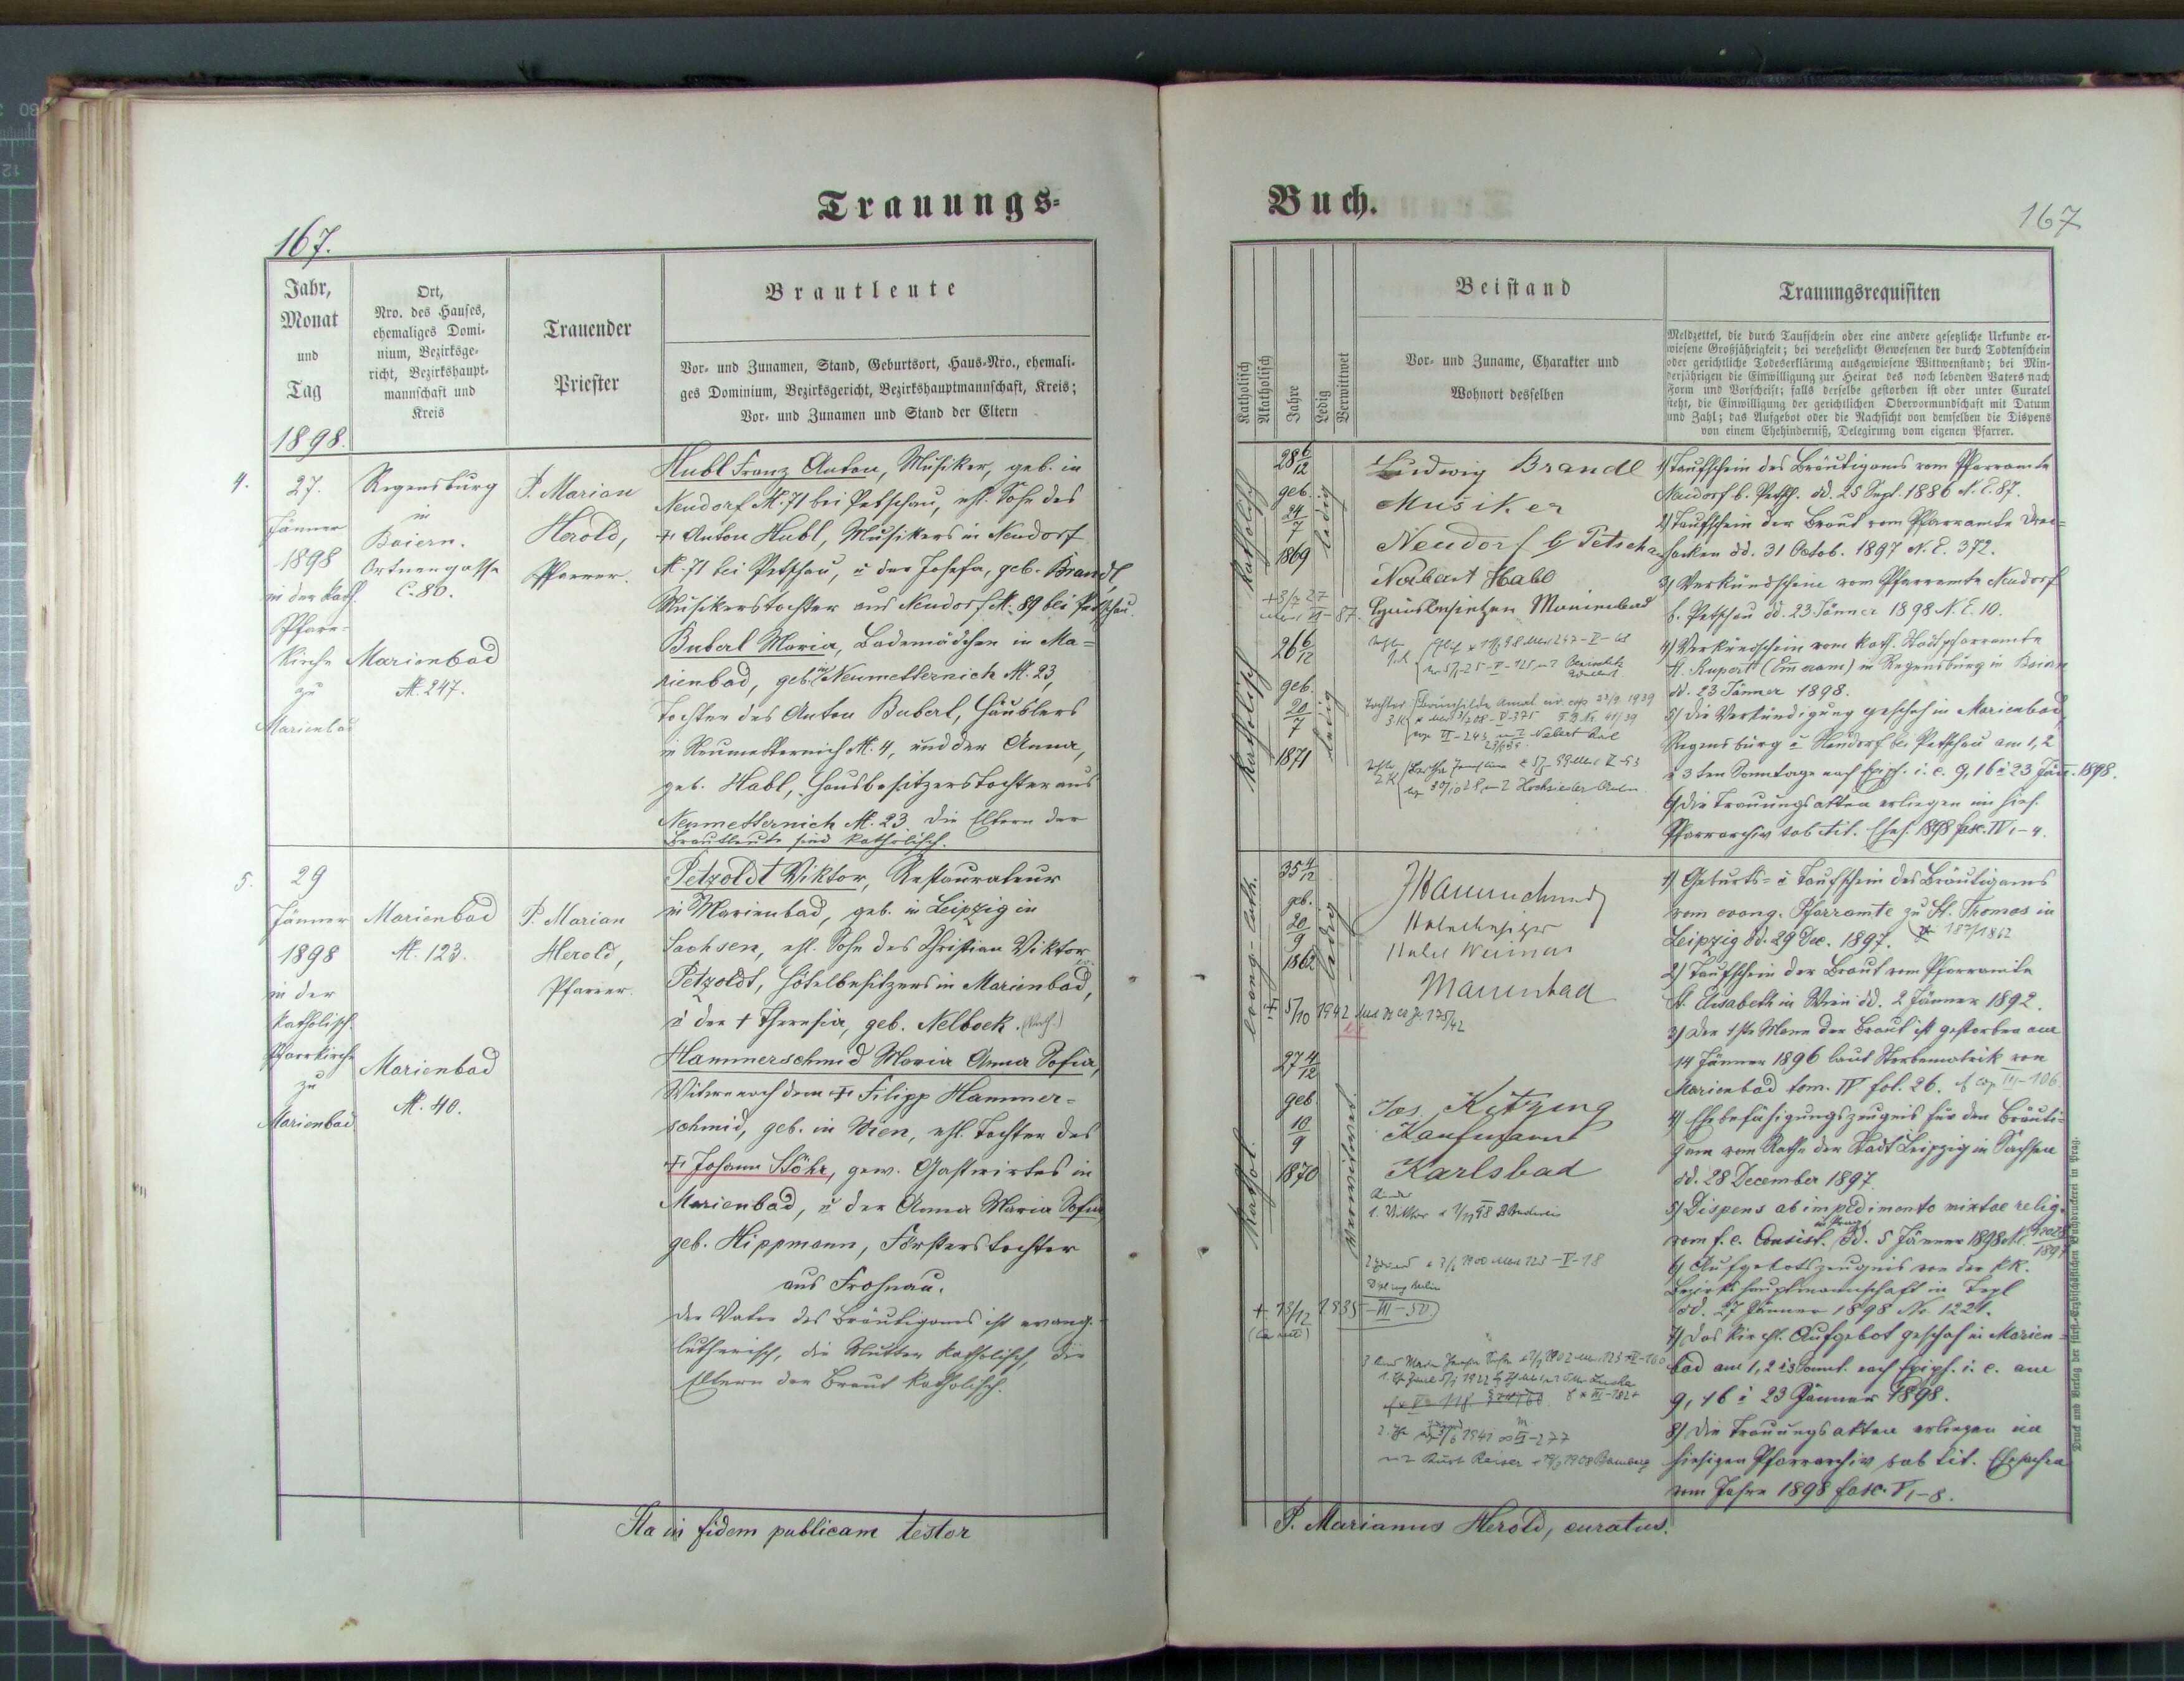 Trauungs-
167.
Jahr,
Monat
und
Tag
1898.
Ort,
Nro. des Hauses,
ehemaliges Domi-
nium, Bezirksge-
richt, Bezirkshaupt-
mannschaft und
Kreis
Trauender
Priester
Brautleute
Vor- und Zunamen, Stand, Geburtsort, Haus-Nro., ehemali-
ges Dominium, Bezirksgericht, Bezirkshauptmannschaft, Kreis;
Vor- und Zunamen und Stand der Eltern
4.
27.
Jänner
1898
in der kath.
Pfarr-
kirche
zu
Marienbad
Regensburg
in
Baiern.
Ortnergasse
C. 80.
Marienbad
N. 247.
P. Marian
Herold,
Pfarrer.
Hubl Franz Anton, Musiker, geb. in
Neudorf N. 71 bei Petschau, ehl. Sohn des
+ Anton Hubl, Musikers in Neudorf
N. 71 bei Petschau, u der Josefa, geb. Brandl,
Musikerstochter aus Neudorf N. 89 bei Petschau.
Buberl Maria, Bademädchen in Ma-
rienbad, geb. in Neumetternich N. 23,
Tochter des Anton Buberl, Häuslers
in Neumetternich N. 4, und der Anna,
geb. Habl, Hausbesitzerstochter aus
Neumetternich N. 23. Die Eltern der
Brautleute sind katholisch.
5.
29
Jänner
1898
in der
katholisch.
Pfarrkirche
zu
Marienbad
Marienbad
N. 123.
Marienbad
N. 40.
P. Marian
Herold,
Pfarrer.
Petzoldt Viktor, Restaurateur
in Marienbad, geb. in Leipzig in
Sachsen, ehl. Sohn des Christian Viktor
Petzoldt, Hôtelbesitzers in Marienbad,
u der + Theresia, geb. Nelboek. (kath.)
Hammerschmid Maria Anna Sofia,
Witwe nach dem + Filipp Hammer-
schmid, geb. in Wien, ehl. Tochter des
+ Johann Stöhr, gew. Gastwirtes in
Marienbad, u der Anna Maria Sofia
geb. Hippmann, Försterstochter
aus Frohnau.
Der Vater des Bräutigams ist evang.
lutherisch, die Mutter katholisch, die
Eltern der Braut katholisch.
Ita in fidem publicam testor
Buch.
167
Katholisch
Akatholisch
Jahre
Ledig
Verwittwet
Beistand
Vor- und Zuname, Charakter und
Wohnort desselben
Trauungsrequisiten
Meldzettel, die durch Taufschein oder eine andere gesetzliche Urkunde er-
wiesene Großjährigkeit; bei verehelicht Gewesenen der durch Todtenschein
oder gerichtliche Todeserklärung ausgewiesene Wittwenstand; bei Min-
derjährigen die Einwilligung zur Heirat des noch lebenden Vaters nach
Form und Vorschrift; falls derselbe gestorben ist oder unter Curatel
steht, die Einwilligung der gerichtlichen Obervormundschaft mit Datum
und Zahl; das Aufgebot oder die Nachsicht von demselben die Dispens
von einem Ehehinderniß, Delegirung vom eigenen Pfarrer.
katholisch
28 6/12
geb.
24/7
1869
ledig
Ludwig Brandl
Musiker
Neudorf b Petschau
Norbert Habl
Hausbesitzer Marienbad
katholisch
26 6/12
geb.
20/7
1871
ledig
1) Taufschein des Bräutigams vom Pfarramte
Neudorf b. Petsch. dd. 25 Sept. 1886 N. E. 87.
2) Taufschein der Braut vom Pfarramte Drei-
hacken dd. 31 Octob. 1897 N. E. 372.
3) Verkündschein vom Pfarramte Neudorf
b. Petschau dd. 23 Jänner 1898 N. E. 10.
4) Verkündschein vom kath. Stadtpfarramte
St. Rupert (Emmeram) in Regensburg in Baiern
dd. 23 Jänner 1898.
5) Die Verkündigung geschah in Marienbad,
Regensburg u Neudorf bei Petschau am 1, 2
u 3ten Sonntage nach Epiph. i. e. 9, 16 u 23 Jän. 1898.
6) Die Trauungsakten erliegen im hies.
Pfarrarchiv sub tit. Ehes. 1898 fasc. IV, -4.
evang.-luth.
35 4/12
geb.
20/9
1862
ledig
Hotelbesitzer
Hotel Weimar
Marienbad
+ 5/10 1942
kathol.
27 4/12
geb.
10/9
1870
Verwitwet.
Jos. Kitzing
Kaufmann
Karlsbad
1) Geburts- u Taufschein des Bräutigams
vom evang. Pfarramte zu St. Thomas in
Leipzig dd. 29 Dec. 1897.
2) Taufschein der Braut vom Pfarramte
St. Elisabeth in Wien dd. 2 Jänner 1892.
3) Der 1ste Mann der Braut ist gestorben am
14 Jänner 1896 laut Sterbematrik von
Marienbad tom. IV fol. 26.
4) Ehebefähigungszeugnis für den Bräuti-
gam vom Rathe der Stadt Leipzig in Sachsen
dd. 28 December 1897.
5) Dispens ab impedimento mixtae relig.
vom f. e. Consist. in Prag dd. 5 Jänner 1898
6) Aufgebotszeugnis von der kk.
Bezirkshauptmannschaft in Tepl
dd. 27 Jänner 1898 No. 1221.
7) Das kirchl. Aufgebot geschah in Marien-
bad am 1, 2 u 3 Sonnt. nach Epiph. i. e. am
9, 16 u 23 Jänner 1898.
8) Die Trauungsakten erliegen im
hiesigen Pfarrarchiv sub tit. Ehesachen
vom Jahre 1898 fasc. V, -8.
P. Marianus Herold, curatus.
Druck und Verlag der fürst-erzbischöflichen Buchdruckerei in Prag.